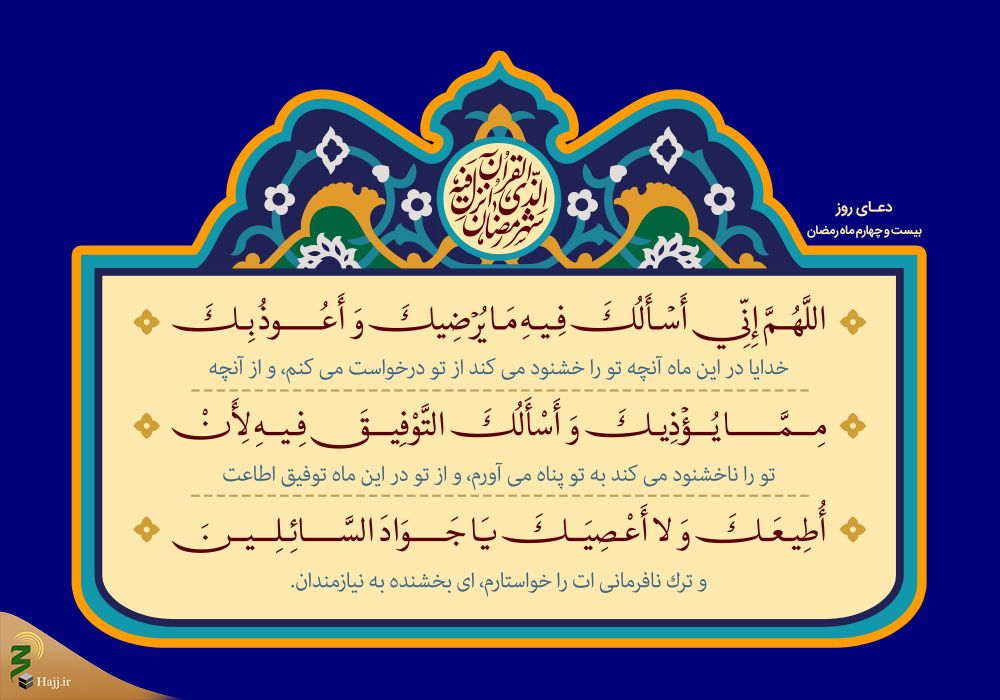 شهر رمضان
الذی انزل فیه
القرآن
دعـای روز
بیست و چهارم ماه رمضان
اللَّهُمَّ إِنِّي أَسْأَلُكَ فِيهِ مَا يُرْضِيكَ وَ أَعُوذُ بِكَ
خدایا در این ماه آنچه تو را خشنود می کند از تو درخواست می کنم، و از آنچه
مِمَّا يُؤْذِيكَ وَ أَسْأَلُكَ التَّوْفِيقَ فِيهِ لِأَنْ
تو را ناخشنود می کند به تو پناه می آورم، و از تو در این ماه توفیق اطاعت
أُطِيعَكَ وَ لا أَعْصِيَكَ يَا جَوَادَ السَّائِلِينَ
و ترك نافرمانی ات را خواستارم، ای بخشنده به نیازمندان.
Hajj.ir